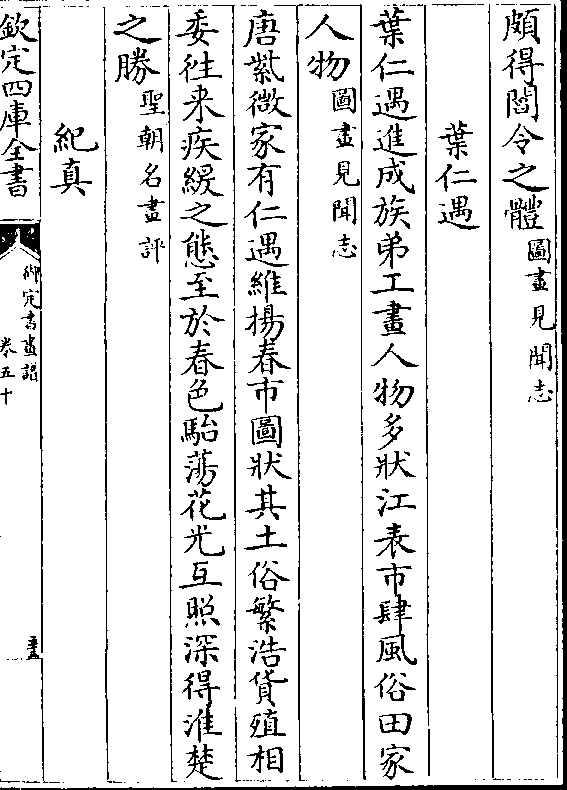 頗得閻令之體圖畫見聞志
葉仁遇
葉仁遇進成族弟工畫人物多狀江表市肆風俗田家
人物圖畫見聞志
唐紫微家有仁遇維揚春市圖狀其土俗繁浩貨殖相
委往来疾緩之態至於春色駘蕩花光互照深得淮楚
之勝聖朝名畫評
紀真
欽定四庫全書
御定書畫譜
卷五十